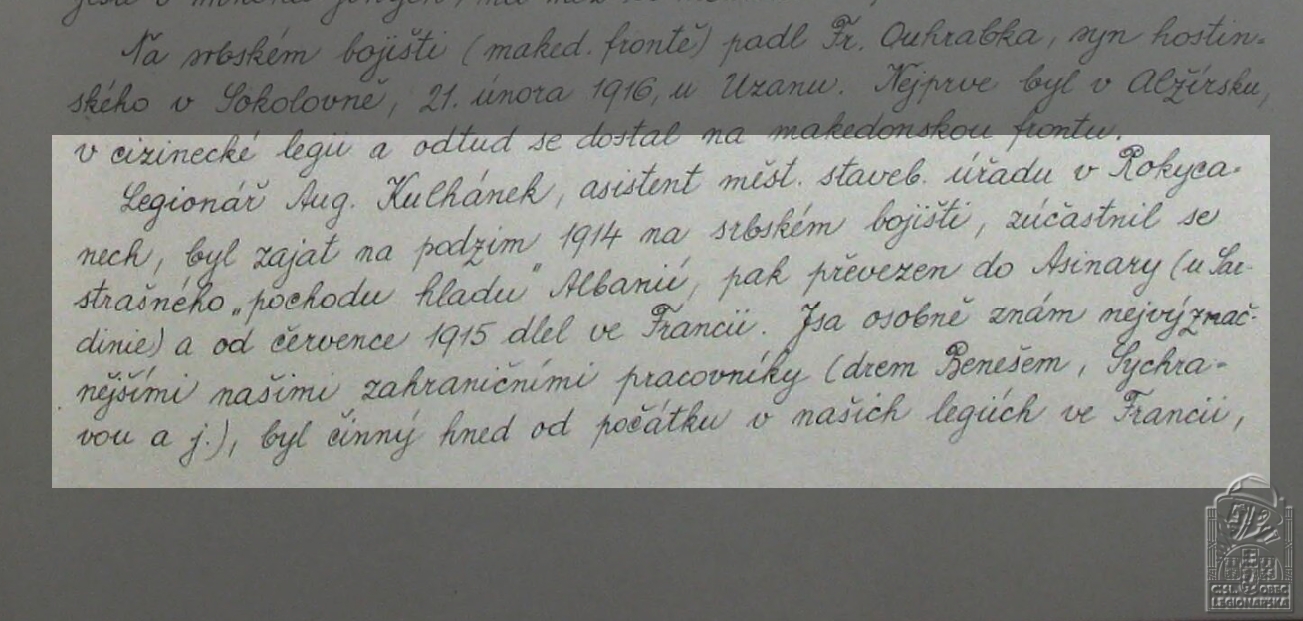 Na srbském bojišti (maked. frontě) padl Fr. Ouhrabka, syn hostin-
ského v Sokolovně, 21. února 1916, u Uzanu. Nejprve byl v Alžírsku,
v cizinecké legii a odtud se dostal na makedonskou frontu.
Legionář Aug. Kulhánek, asistent měst. staveb. úřadu v Rokyca-
nech, byl zajat na podzim 1914 na srbském bojišti, zúčastnil se
strašného „pochodu hladu" Albanií, pak převezen do Asinary (u Sar-
dinie) a od července 1915 dlel ve Francii. Jsa osobně znám nejvýznač-
nějšími našimi zahraničními pracovníky (drem Benešem, Sychra-
vou a j.), byl činný hned od počátku v našich legiích ve Francii,
ČSL. OBEC
LEGIONÁŘSKÁ